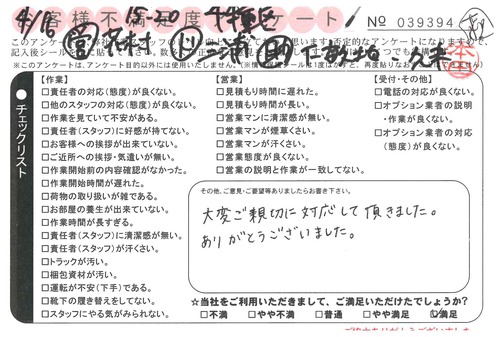 4/16 15-20 千種区
お客様不満足度アンケート!
No 039394
このアンケートに
否定的なアンケートになりますので、
※このアンケートは、アンケート目的以外には使用いたしません。
チェックリスト
【作業】
□責任者の対応(態度)が良くない。
□他のスタッフの対応(態度)が良くない。
□作業を見ていて不安がある。
□責任者(スタッフ)に好感が持てない。
□お客様への挨拶が出来ていない。
□ご近所への挨拶・気遣いが無い。
□作業開始前の内容確認がなかった。
□作業開始時間が遅れた。
□荷物の取り扱いが雑である。
□お部屋の養生が出来ていない。
□作業時間が長すぎる。
□責任者(スタッフ)に清潔感が無い。
□責任者(スタッフ)が汗くさい。
□トラックが汚い。
□梱包資材が汚い。
□運転が不安(下手)である。
□靴下の履き替えをしてない。
□スタッフにやる気がみられない。
【営業】
□見積もり時間に遅れた。
□見積もり時間が長い。
□営業マンに清潔感が無い。
□営業マンが煙草くさい。
□営業マンが汗くさい。
□営業態度が良くない。
□営業の説明と作業が一致してない。
【受付・その他】
□電話の対応が良くない。
□オプション業者の説明
・作業が良くない。
□オプション業者の対応
(態度)が良くない。
その他、ご意見・ご要望等ありましたらお書き下さい。
大変ご親切に対応して頂きました。
ありがとうございました。
☆当社をご利用いただきまして、ご満足いただけたでしょうか?
□不満 □やや不満 □普通 □やや満足 ☑満足
ご協力ありがとうございました